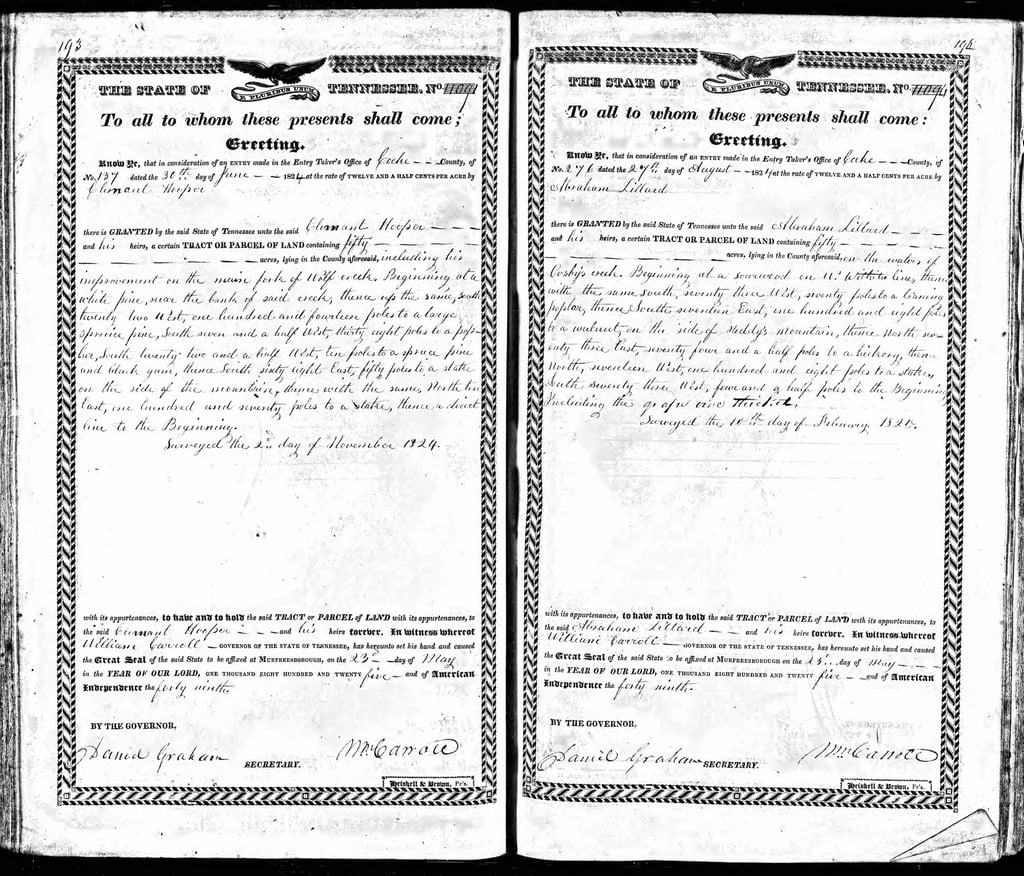 193
THE STATE OF TENNESSEE, No
E PLURIBUS UNUM
To all to whom these presents shall come;
Greeting.
Know Ye, that in consideration of an ENTRY made in the Entry Taker's Office of Cocke - - - County, of
No. 137 dated the 30th day of June - - 1824 at the rate of TWELVE AND A HALF CENTS PER ACRE by
Clemant Hooper
there is GRANTED by the said State of Tennessee unto the said Clemant Hooper - - - -
and his heirs, a certain TRACT OR PARCEL OF LAND containing fifty - - - -
acres, lying in the County aforesaid, including his
improvement on the main fork of Wolf creek. Beginning at a
white pine, near the bank of said creek, thence up the same, South
twenty two West, one hundred and fourteen poles to a large
spruce pine, South seven and a half West, thirty eight poles to a pop-
lar, South twenty two and a half West, ten poles to a spruce pine
and black gum, thence South sixty eight East, fifty poles to a stake
on the side of the mountain, thence with the same, North ten
East, one hundred and seventy poles to a stake, thence a direct
line to the Beginning.
Surveyed the 2nd day of November 1824.
with its appurtenances, to have and to hold the said TRACT or PARCEL of LAND with its appurtenances, to
the said Clemant Hooper - - - and his heirs forever. In witness whereof
William Carroll - GOVERNOR OF THE STATE OF TENNESSEE, has hereunto set his hand and caused
the Great Seal of the said State to be affixed at MURFREESBOROUGH on the 23 - day of May
in the YEAR OF OUR LORD, ONE THOUSAND EIGHT HUNDRED AND TWENTY five - and of American
Independence the forty ninth.
BY THE GOVERNOR,
Daniel Graham SECRETARY. Wm Carroll
Heiskell & Brown, Pr's.
194
THE STATE OF TENNESSEE, No
E PLURIBUS UNUM
To all to whom these presents shall come:
Greeting.
Know Ye, that in consideration of an ENTRY made in the Entry Taker's Office of Cocke - - - County, of
No. 276 dated the 27th day of August - - 1824 at the rate of TWELVE AND A HALF CENTS PER ACRE by
Abraham Lillard
there is GRANTED by the said State of Tennessee unto the said Abraham Lillard - -
and his heirs, a certain TRACT OR PARCEL OF LAND containing fifty - - - -
acres, lying in the County aforesaid, on the waters of
Cosby's creek. Beginning at a sourwood on line, thence
with the same South, seventy three West, seventy poles to a
poplar, thence South, seventeen East, one hundred and eight poles
to a walnut, on the side of mountain, thence North sev-
enty three East, seventy four and a half poles to a hickory, then
North, seventeen West, one hundred and eight poles to a stake,
South seventy three West, four and a half poles to the Beginning
Including the grape vine
Surveyed the day of February
with its appurtenances, to have and to hold the said TRACT or PARCEL of LAND with its appurtenances, to
the said Abraham Lillard - - and his heirs forever. In witness whereof
William Carroll - GOVERNOR OF THE STATE OF TENNESSEE, has hereunto set his hand and caused
the Great Seal of the said State to be affixed at MURFREESBOROUGH on the 23 - day of May
in the YEAR OF OUR LORD, ONE THOUSAND EIGHT HUNDRED AND TWENTY five - and of American
Independence the forty ninth.
BY THE GOVERNOR,
Daniel Graham SECRETARY. Wm Carroll
Heiskell & Brown, Pr's.